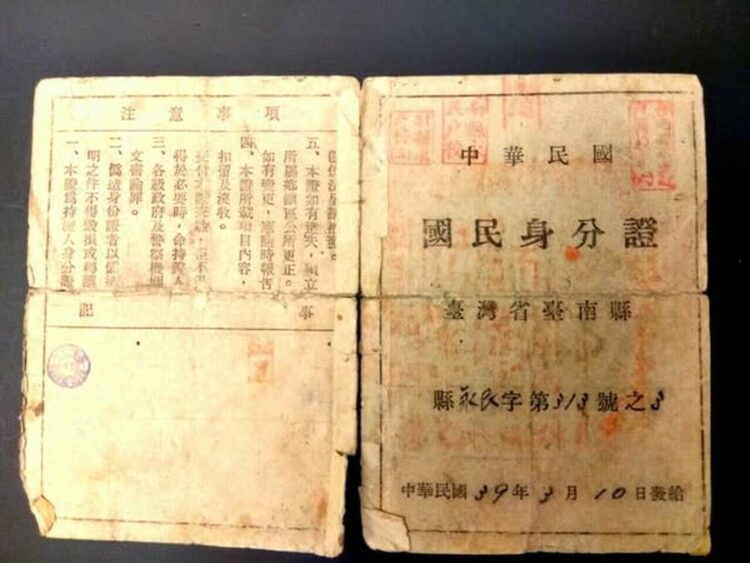 注意事項
一、本證為持證人身分證
明之件不得毀損或轉讓
二、偽造身份證者以偽造
文書論罪。
三、各級政府及警察機關
得於必要時，命持證人
交付本證查驗，但不得
扣留及沒收。
四、本證所載項目內容，
如有變更，應隨時報告
所屬鄉鎮區公所更正。
五、本證如有遺失，須立
記事
中華民國
國民身分證
臺灣省臺南縣
縣永民字第313號之3
中華民國39年3月10日發給